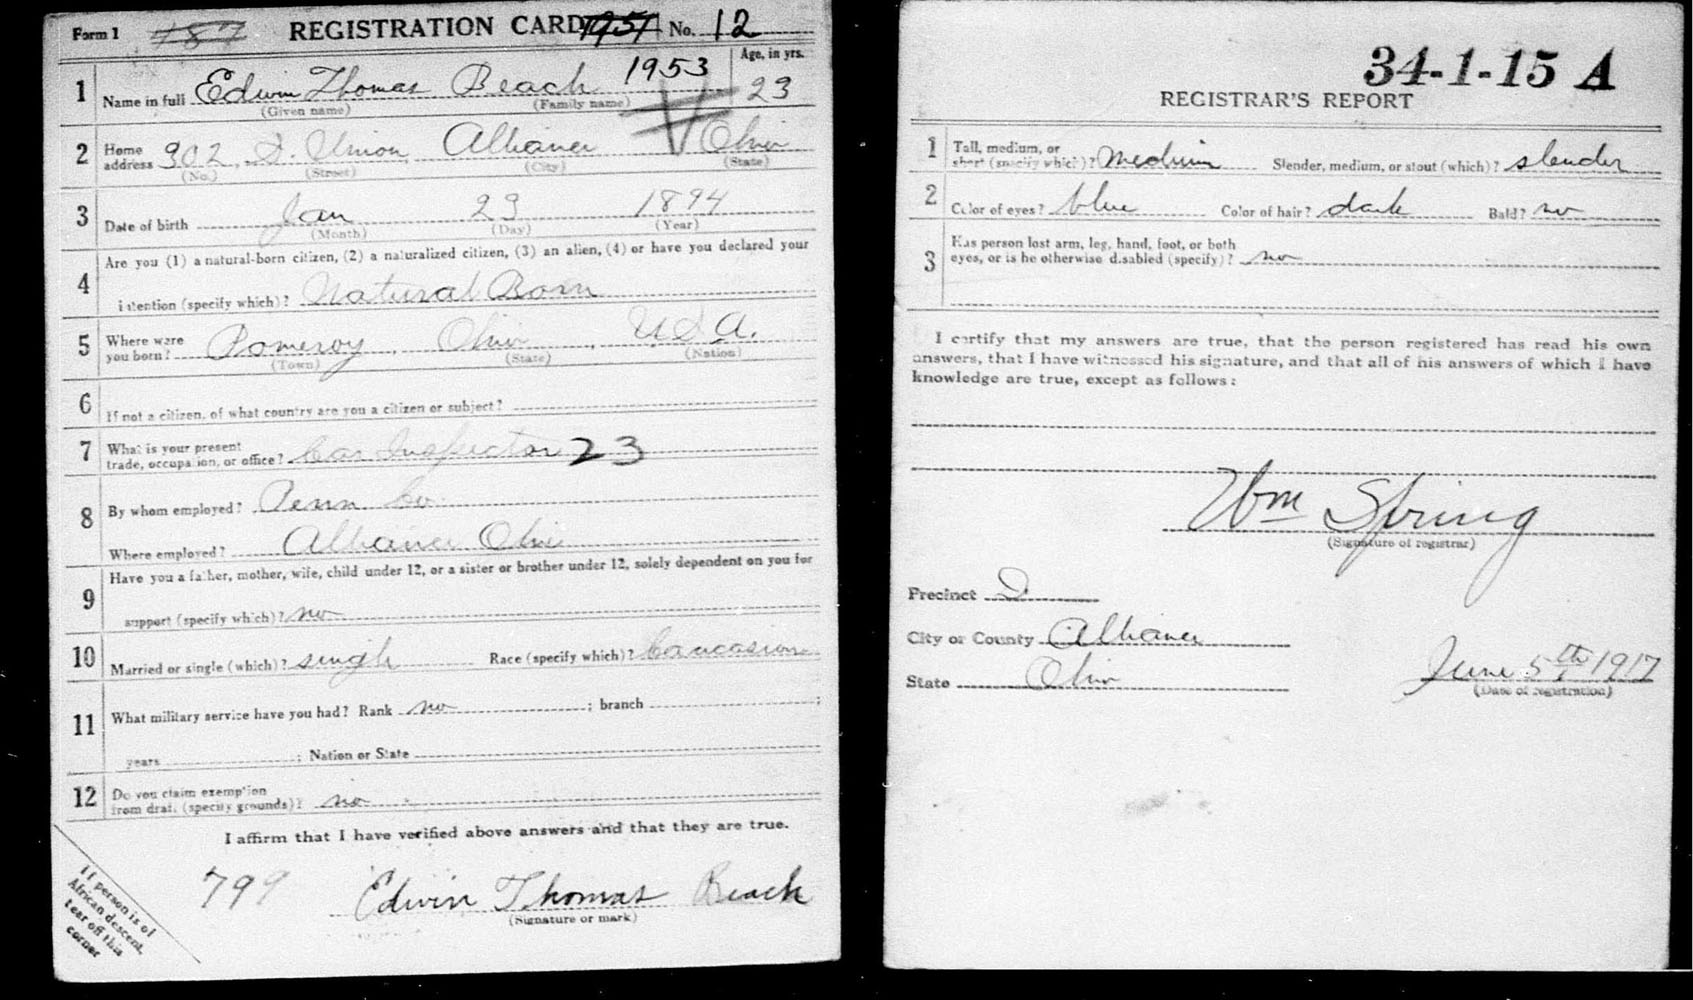 Form 1 187 REGISTRATION CARD 1951 No. 12
1 Name in full Edwin Thomas Beach 1953 Age, in yrs. 23
(Given name) (Family name)
2 Home address 302 S. Union Alliance Ohio
(No.) (Street) (City) (State)
3 Date of birth Jan 23 1894
(Month) (Day) (Year)
4 Are you (1) a natural-born citizen, (2) a naturalized citizen, (3) an alien, (4) or have you declared your
intention (specify which)? Natural Born
5 Where were you born? Pomeroy, Ohio, U.S.A.
(Town) (State) (Nation)
6 If not a citizen, of what country are you a citizen or subject?
7 What is your present trade, occupation, or office? Car Inspector 23
8 By whom employed? Penn Co.
Where employed? Alliance Ohio
9 Have you a father, mother, wife, child under 12, or a sister or brother under 12, solely dependent on you for
support (specify which)? no
10 Married or single (which)? single Race (specify which)? Caucasion
11 What military service have you had? Rank no ; branch ;
years ; Nation or State
12 Do you claim exemption from draft (specify grounds)? no
I affirm that I have verified above answers and that they are true.
799 Edwin Thomas Beach
(Signature or mark)
If person is of
African descent,
tear off this
corner
34-1-15 A
REGISTRAR'S REPORT
1 Tall, medium, or short (specify which)? Medium Slender, medium, or stout (which)? slender
2 Color of eyes? blue Color of hair? dark Bald? no
3 Has person lost arm, leg, hand, foot, or both
eyes, or is he otherwise disabled (specify)? no
I certify that my answers are true, that the person registered has read his own
answers, that I have witnessed his signature, and that all of his answers of which I have
knowledge are true, except as follows:
Wm Spring
(Signature of registrar)
Precinct D
City or County Alliance
State Ohio
June 5th 1917
(Date of registration)